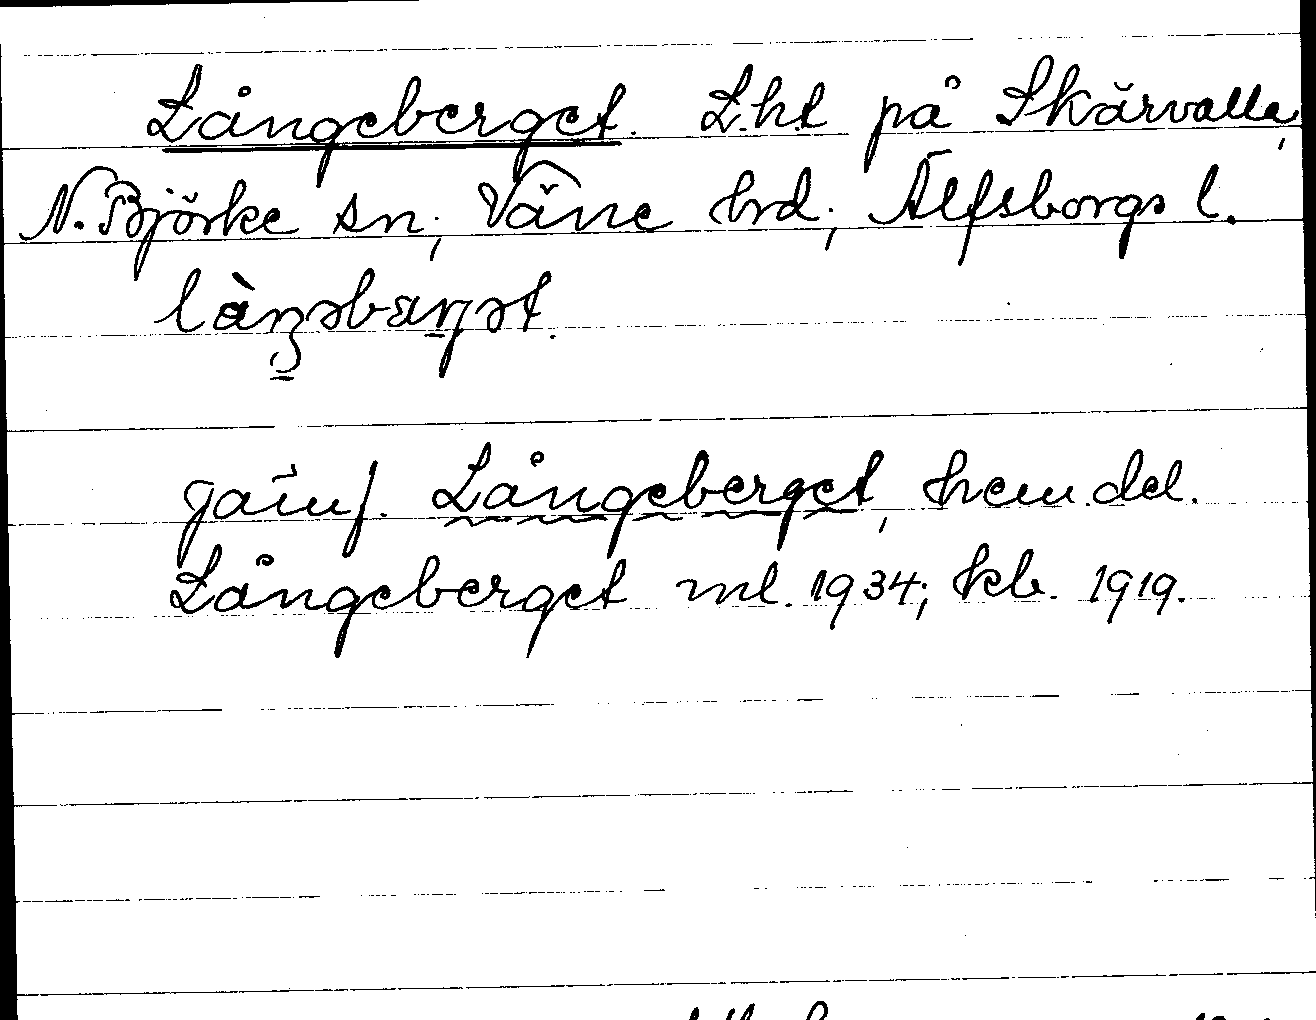 Långeberget. L.ht på Skärvalla,
N. Björke sn, Väne hrd, Älfsborgs l.
jämf. Långeberget, hem.del.
Långeberget ml. 1934; kb. 1919.